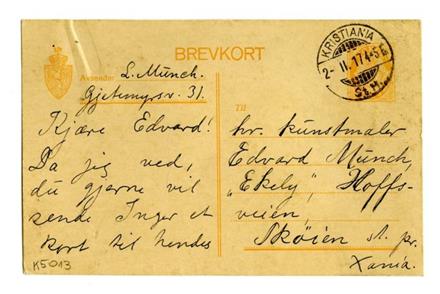 BREVKORT
Avsender L. Munch.
Gjetemyrsv. 31.
Kjære Edvard!
Da jeg ved,
du gjerne vil
sende Inger et
kort til hendes
K5013
KRISTIANIA
2-II.17 4-5 E
St.H.
Til
hr. kunstmaler
Edvard Munch,
"Ekely", Hoffs-
veien,
Skøien st. pr.
Xania.